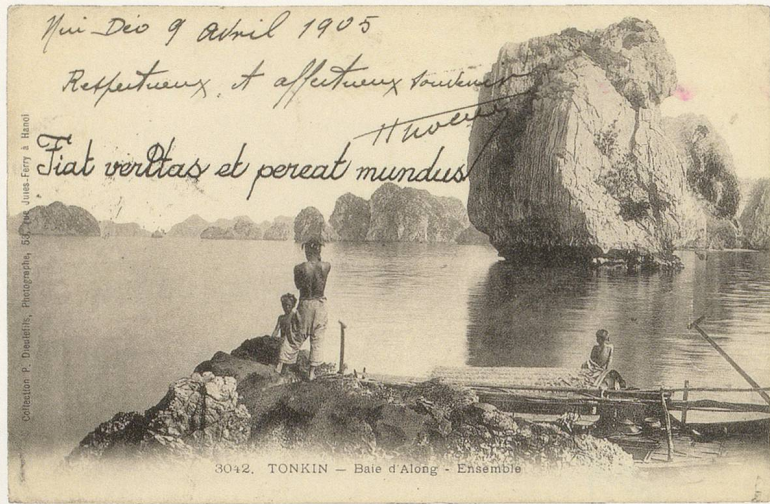 Nui-Déo 9 avril 1905
Respectueux et affectueux souvenir
Fiat veritas et pereat mundus
Collection P. Dieulefils, Photographe, 53, rue Jules-Ferry à Hanoi
3042. TONKIN — Baie d'Along - Ensemble